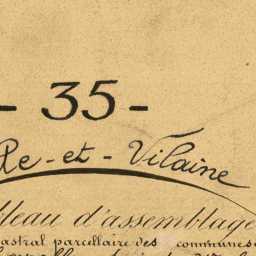 - 35 -
lle-et-Vilaine
bleau d'assemblage
astral parcellaire des communes